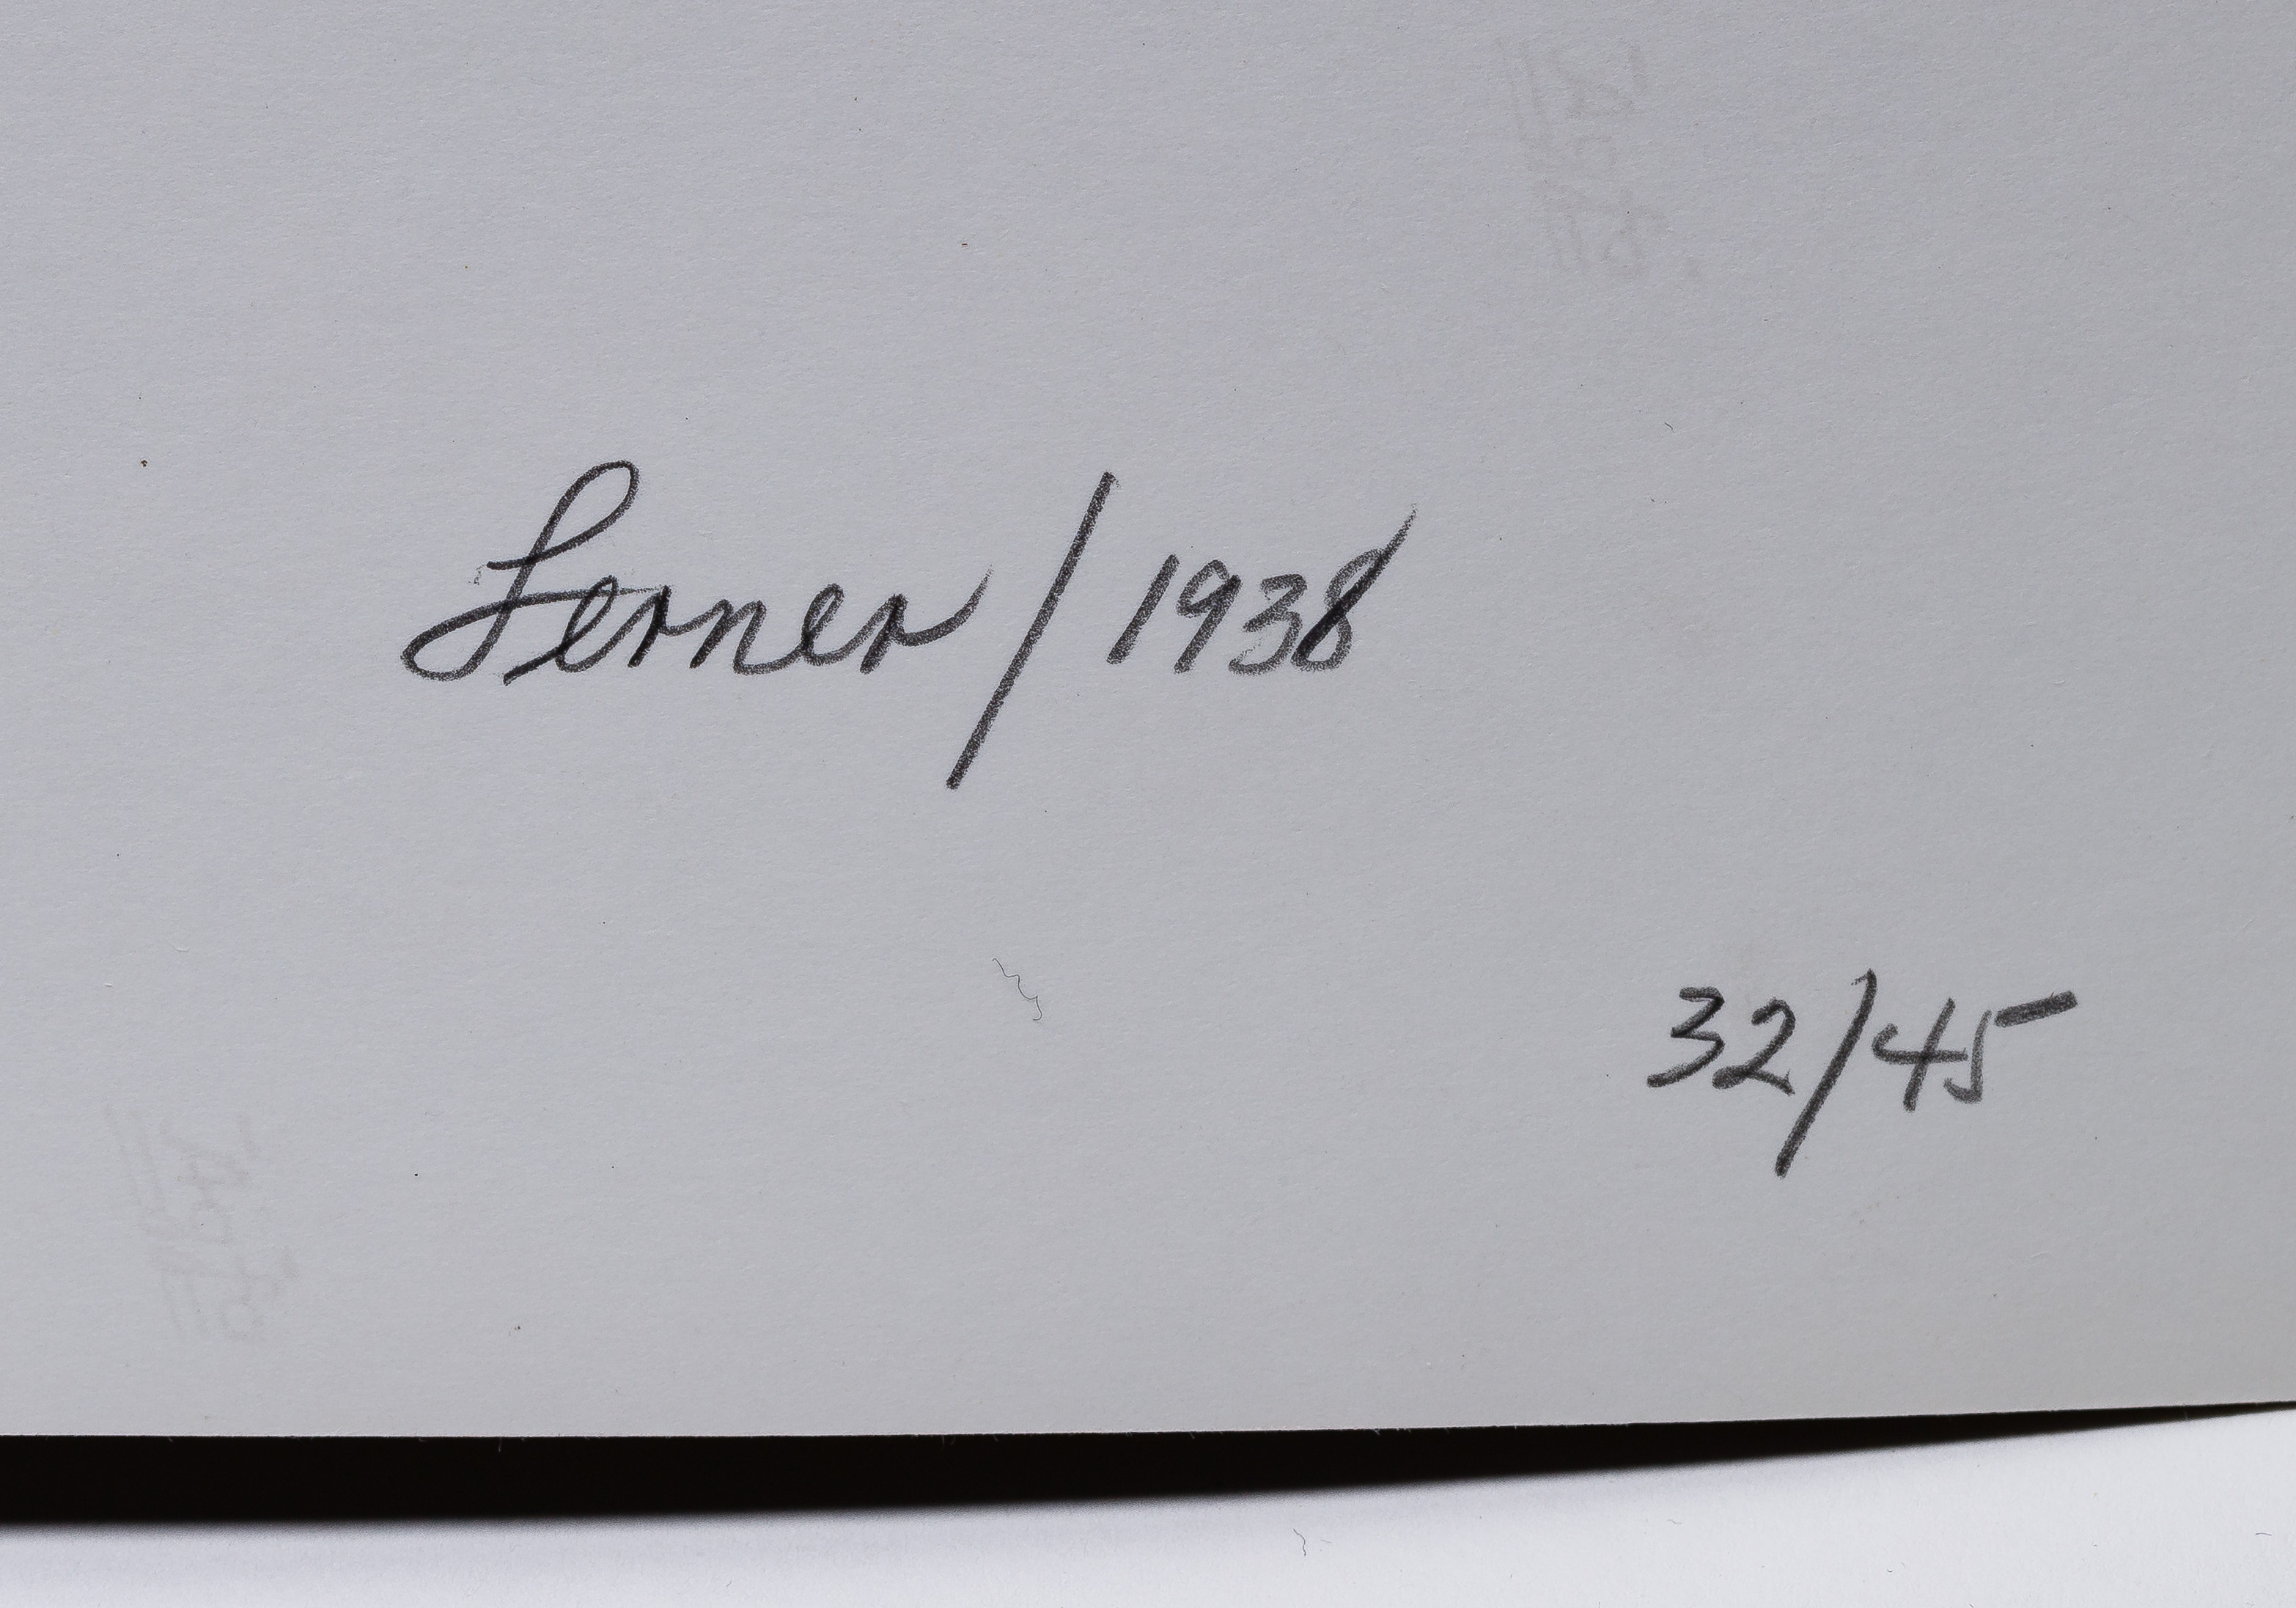 Lerner / 1938
32/45